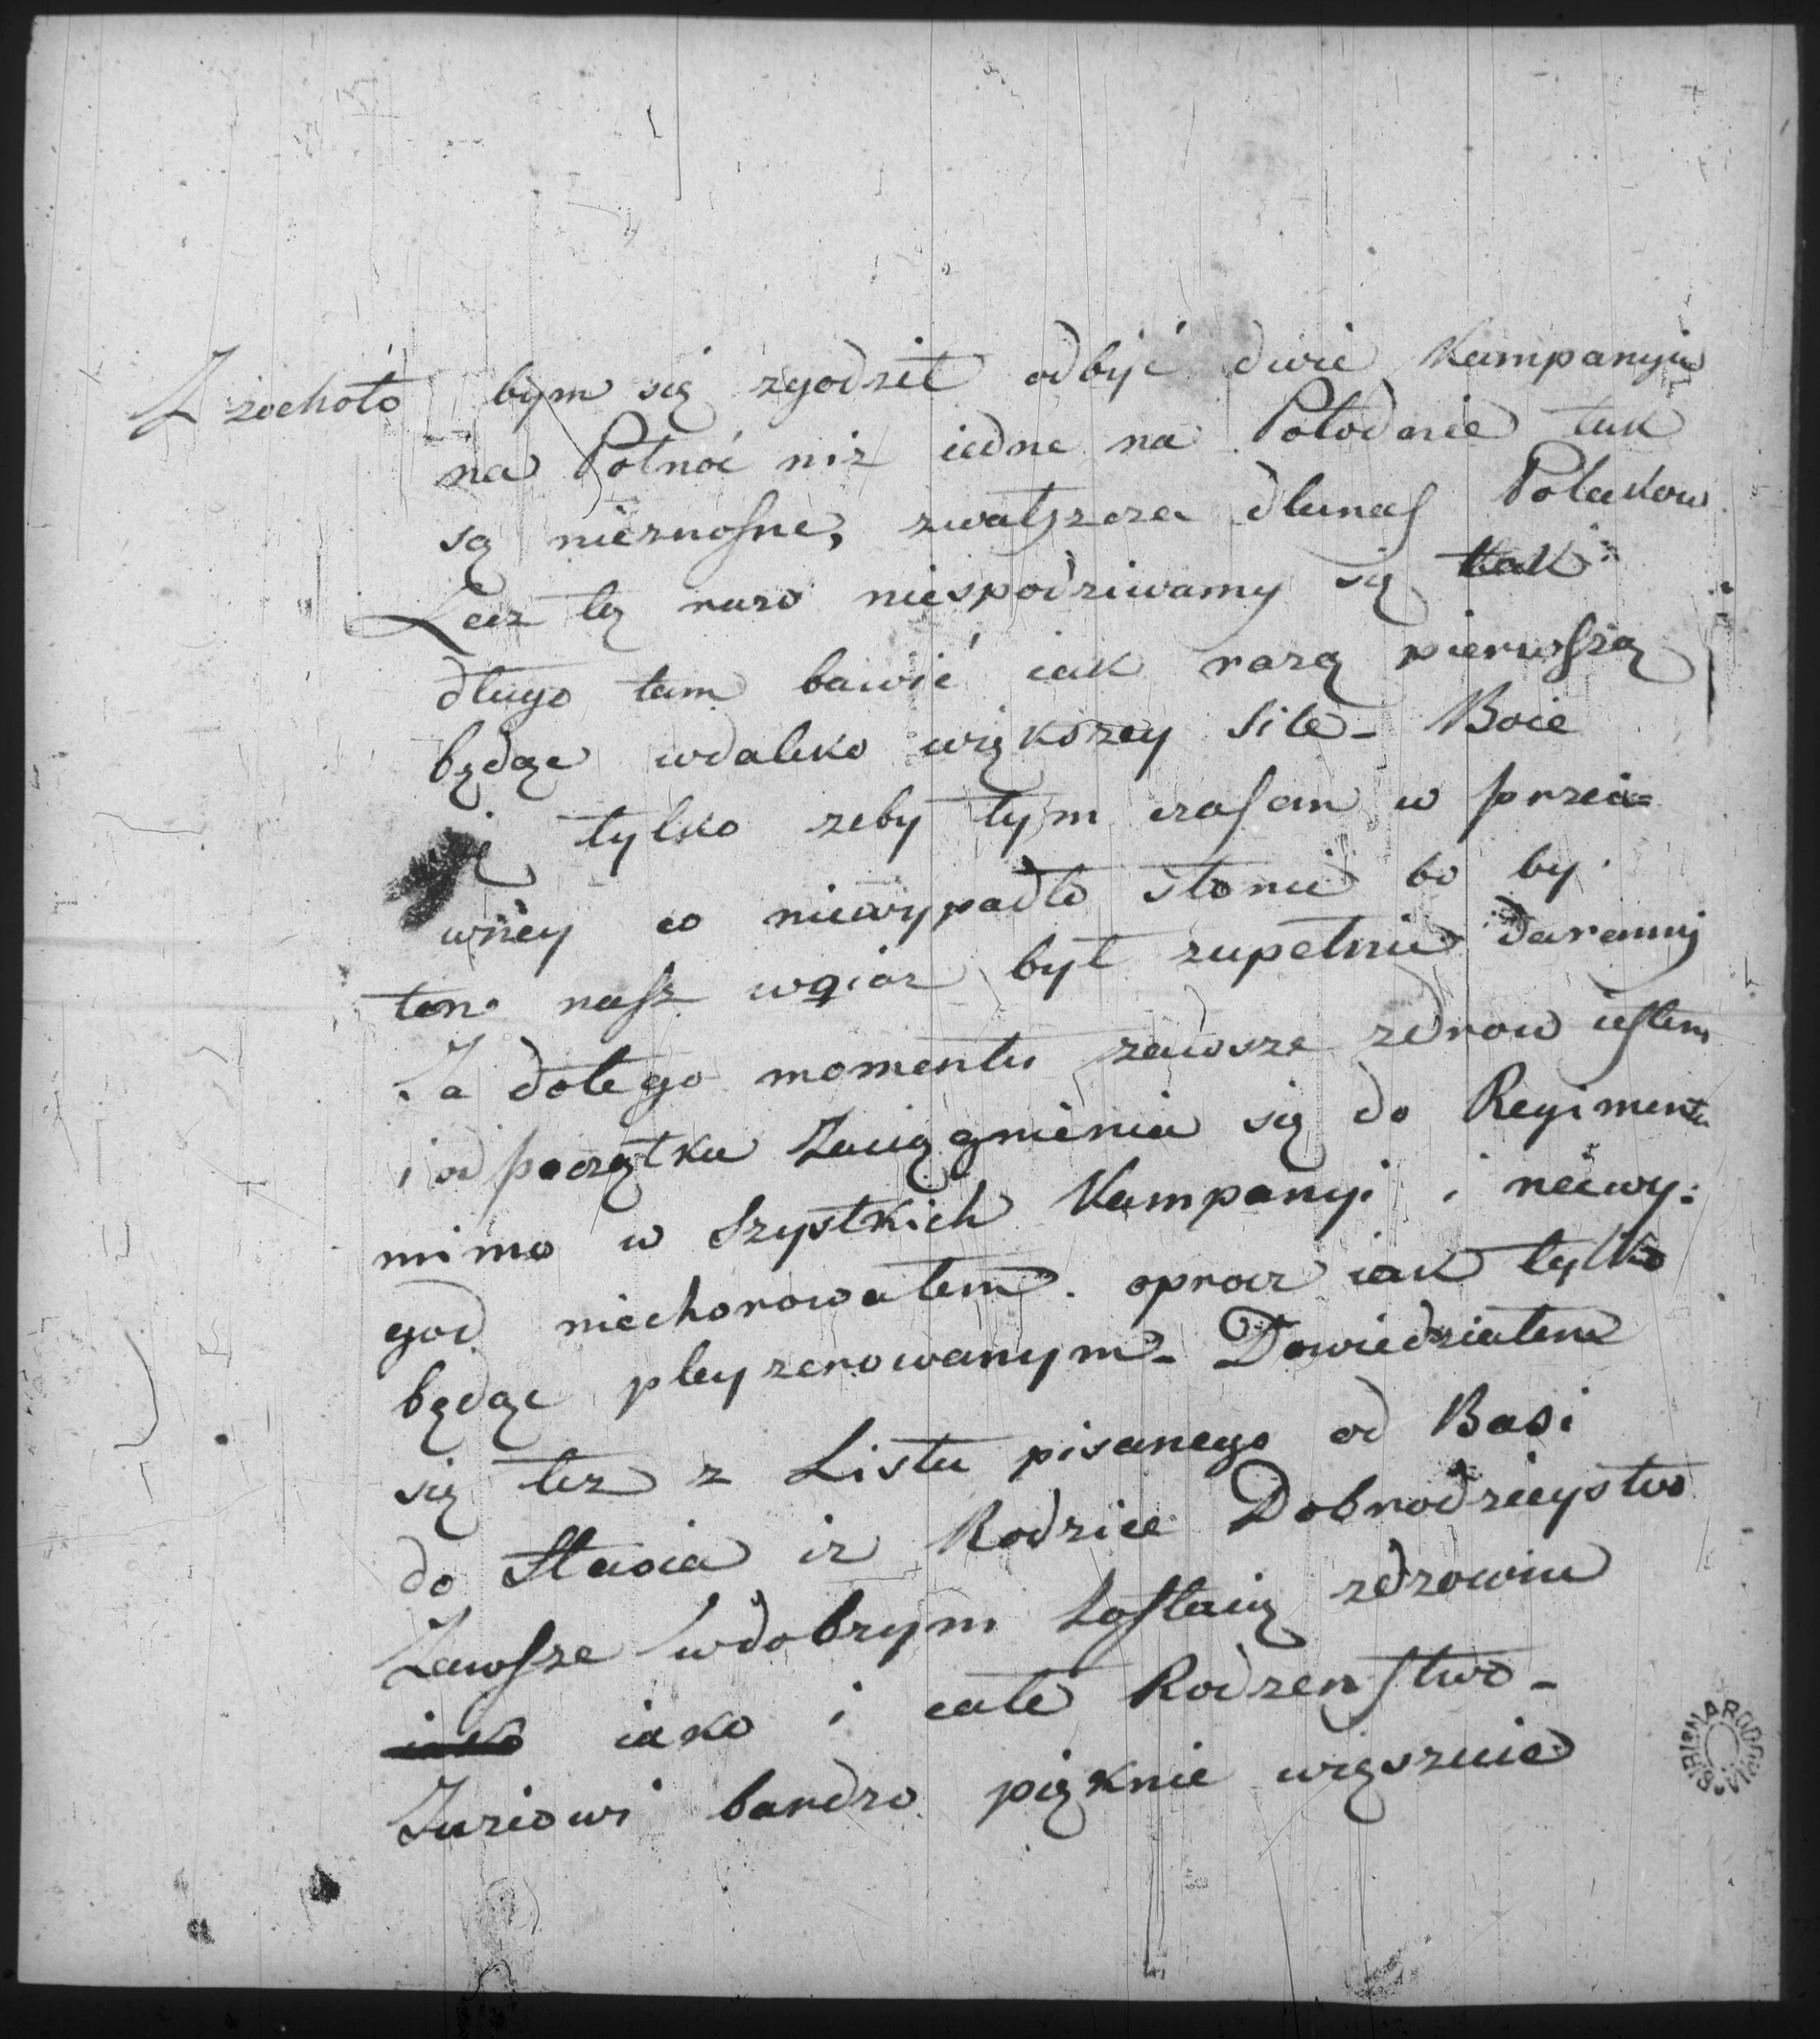 Z zochoto bym się zgodził odbyć dwie Kampanyie
na Połnoć niz iedne na Połodnie tak
są nieznosne, zwałszcza dlanas Polakow
Lecz tę razo niespodziwamy się tak
długo tam bawić iak razą pierwszą
będąc wdaleko większey Sile_ Boie
ę tylko zeby tym czasem w przeci=
wney co niewypadło stonie bo by
ten nasz wąiaz był zupełnie daremny
Ja dotego momentu zawsze zdrow iestem
i od początku Zaciągnienia się do Regimentu
mimo w Szystkich Kampanyi i niewy:
god niechorowałem. oprocz iak tylko
będąc pleyzerowanym_ Dowiedziałem
się tez z Listu pisanego od Basi
do Stasia iz Rodzice Dobrodzieystwo
Zawsze wdobrym Zostaią zdrowiu
iako iako i całe Rodzenstwo_
Juziowi bardzo pięknie więszuie
BIBL. NARODOWA